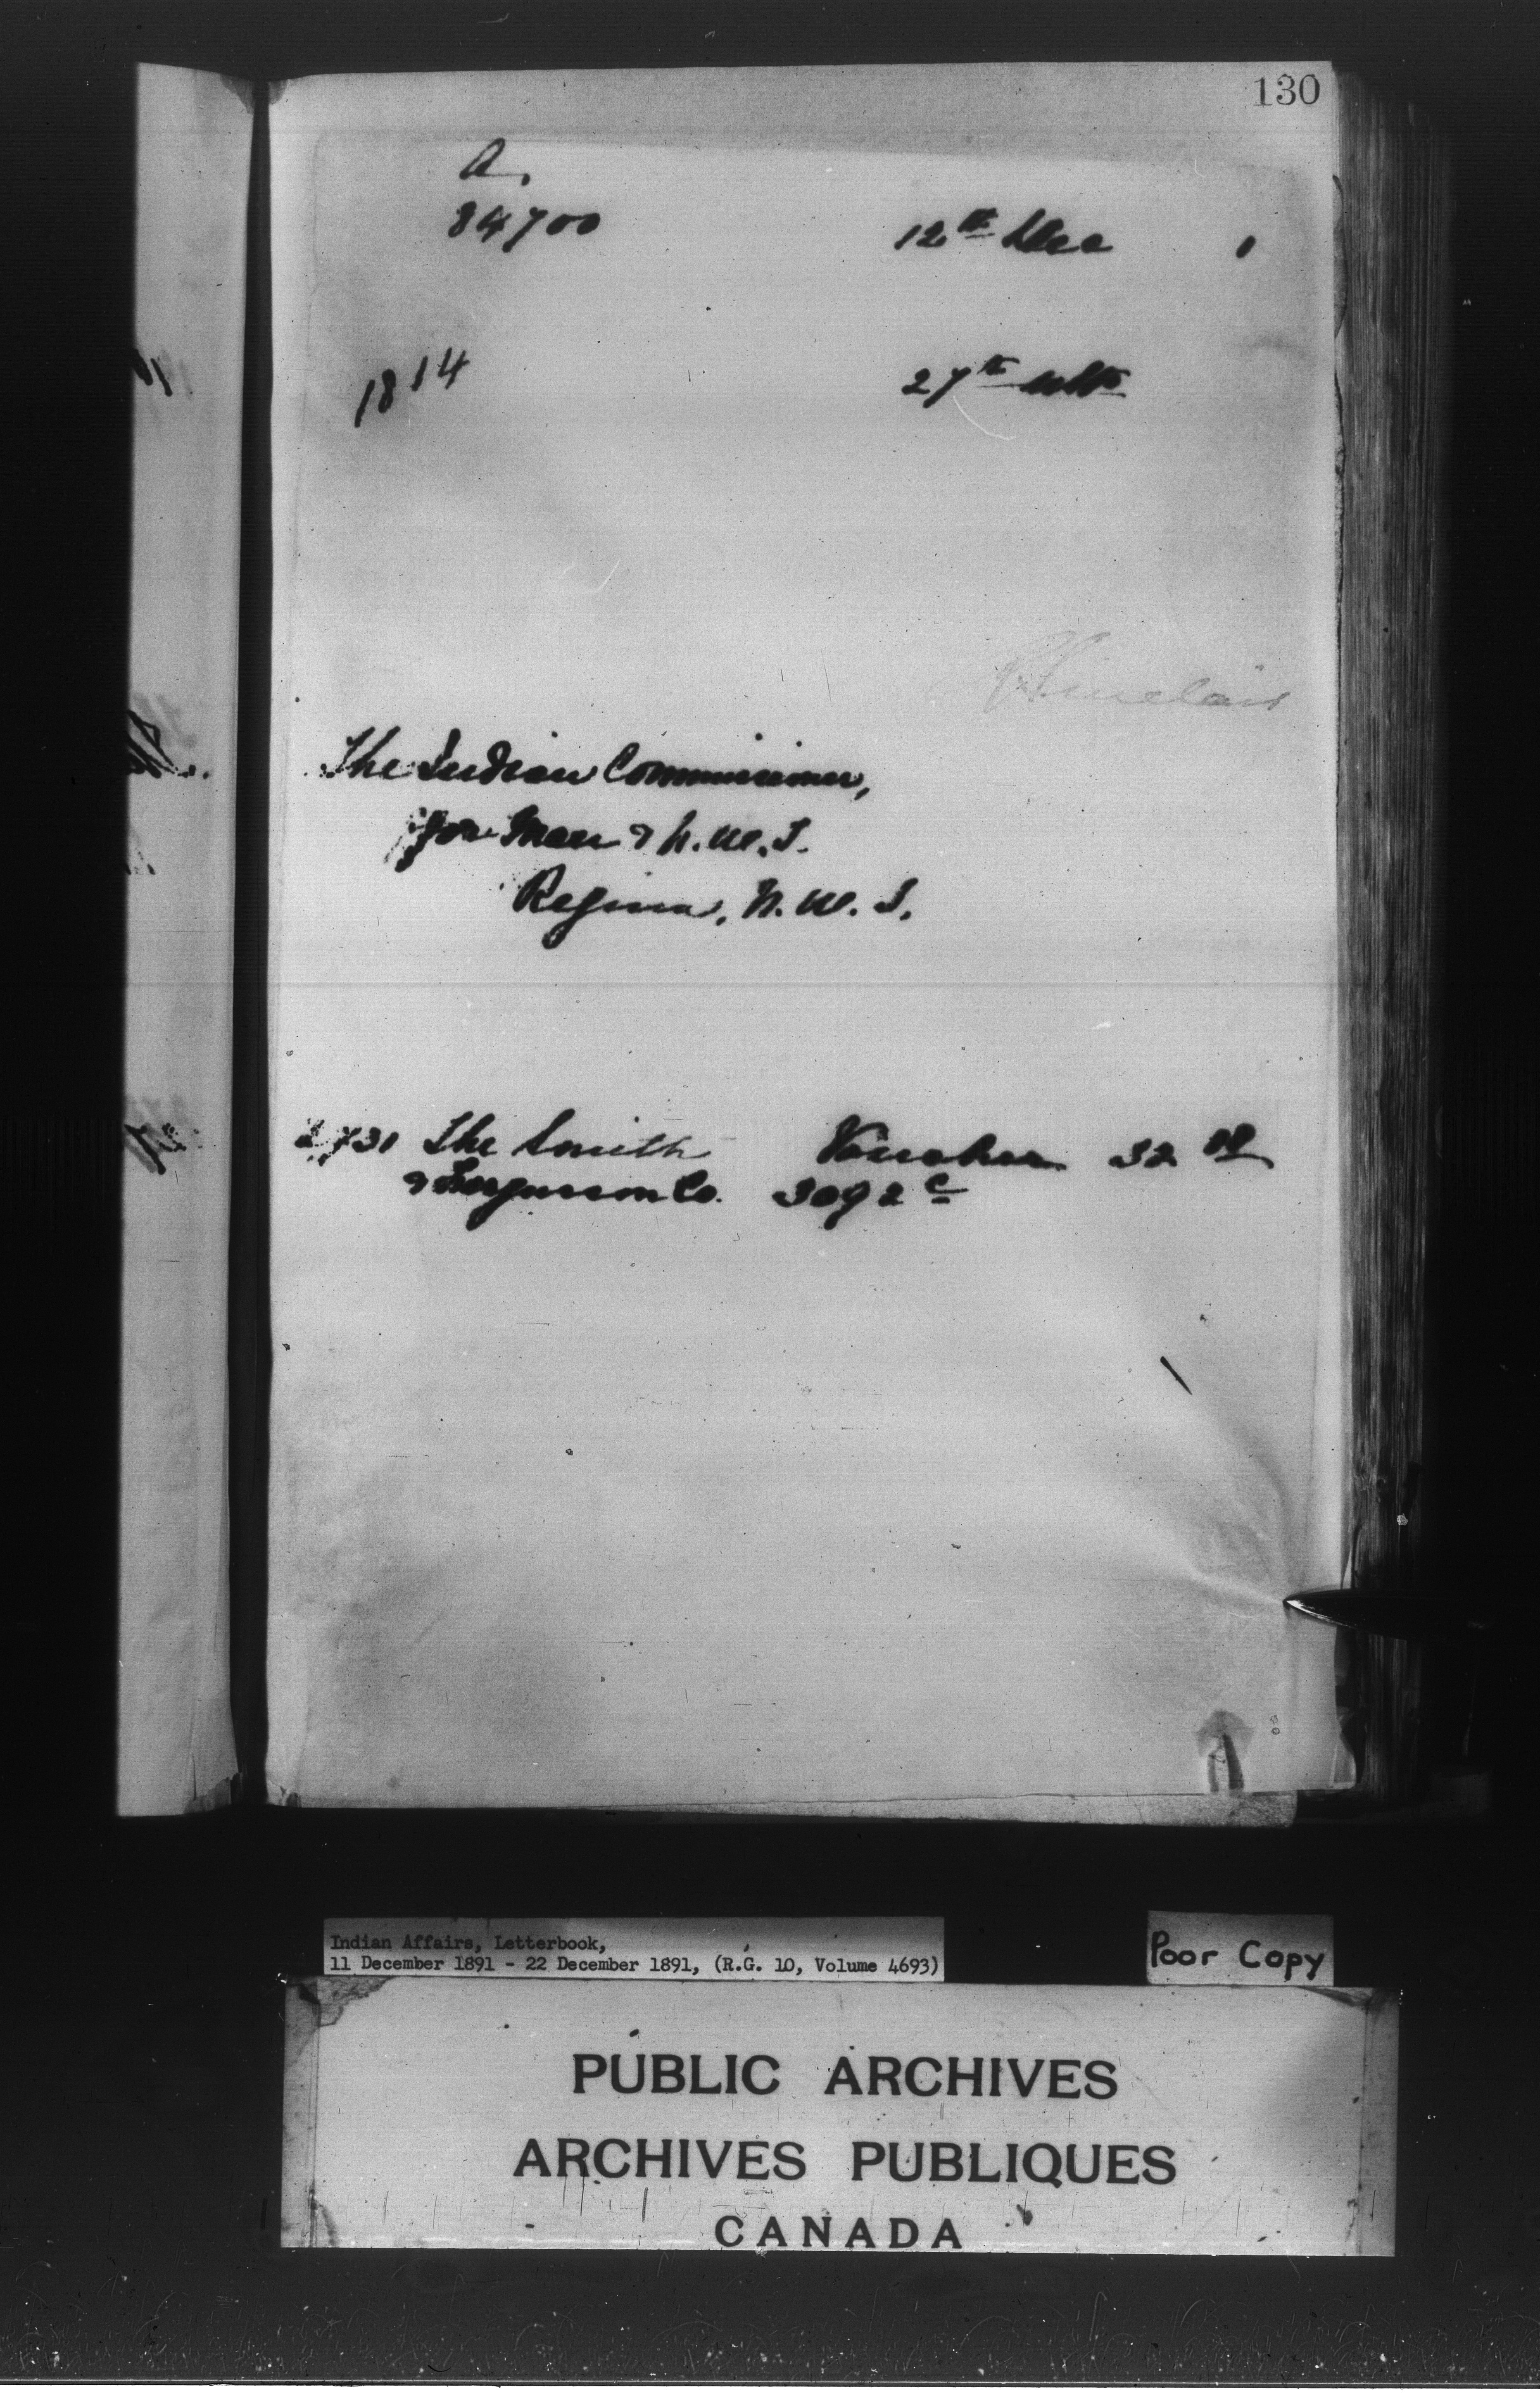 130
A.
84700 12th Dec 1
1814 27th ulto
Sinclair
The Indian Commissioner,
for Man & N.W.T.
Regina, N.W.T.
2731 The Smith Voucher 32
& Fergusson Co. 3092 c
Indian Affairs, Letterbook,
11 December 1891 - 22 December 1891, (R.G. 10, Volume 4693)
Poor Copy
PUBLIC ARCHIVES
ARCHIVES PUBLIQUES
CANADA